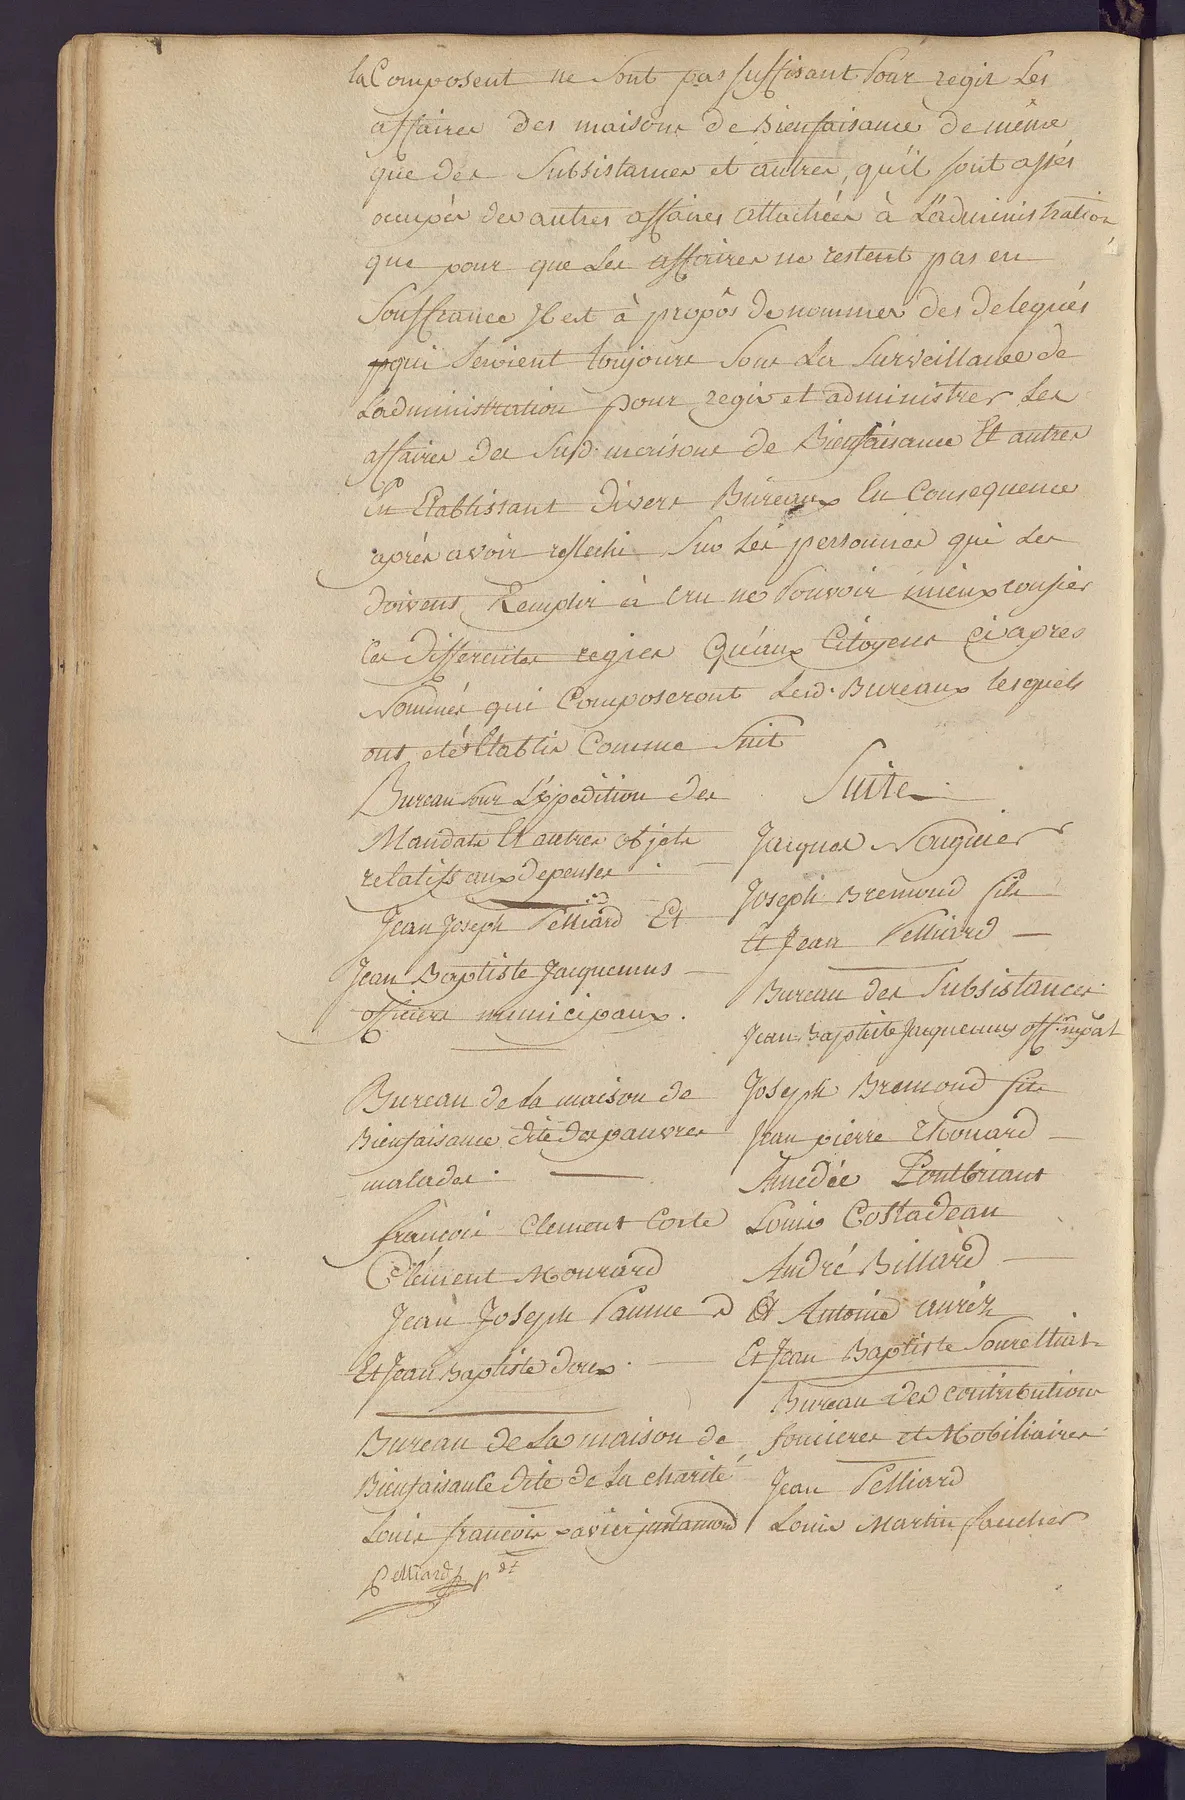 la Composent ne sont pas suffisant pour regir Les
affaires des maisons de Bienfaisance de même
que des Subsistances et autres, qu'il sont assés
occupés des autres affaires attachées à L'administration
que pour que Les affaires ne restent pas en
Souffrance Il est à propôs de nommer des delegués
qui seroient toujours sous La Surveillance de
L'administration pour regir et administrer Les
affaires des Susd. maisons de Bienfaisance Et autres
En Etablissant divers Bureaux En Consequence
aprés avoir reflechi Sur Les personnes qui Les
doivent Remplir à cru ne pouvoir mieux confier
Ces differentes regies Qu'aux Citoyens ci apres
Nommés qui Composeront Lesd. Bureaux lesquels
ont eté Etablis Comme Suit
Bureau pour L'Expedition des
Mandats Et autres objets
relatifs aux depenses.
Jean Joseph Pelliard Et
Jean Baptiste Jacquemus
officiers municipaux.
Bureau de La maison de
Bienfaisance dite des pauvres
malades.
françois Clement Coste
Clément Mourard
Jean Joseph Paume
Et Jean Baptiste doux.
Bureau de La maison de
Bienfaisance dite de La charité
Louis françois xavier justamond
Pelliard pdt
Suite.
Jacques Nouguier
Joseph Bremond fils
Et Jean Pelliard
Bureau des Subsistances.
Jean Baptiste Jacquemus off. mpal
Joseph Bremond fils
Jean pierre Chouard
Amedée Pontbriant
Louis Costadeau
André Billard
Et Antoine auréz
Et Jean Baptiste
Bureau des contributions
foncieres et Mobiliaires
Jean Pelliard
Louis Martin faucher